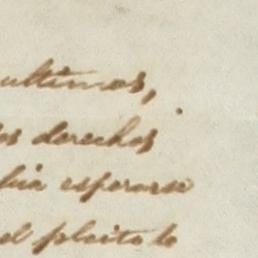 ultimos,
os derechos
bia esperarse
el pleito lo